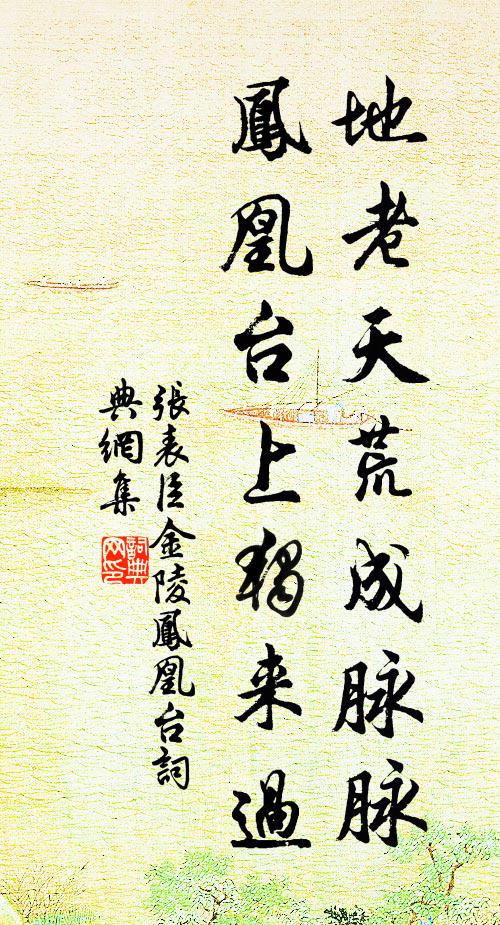 地老天荒成脉脉
鳳凰台上獨来過
張表臣金陵鳳凰台詞
典網集
詞典
网印